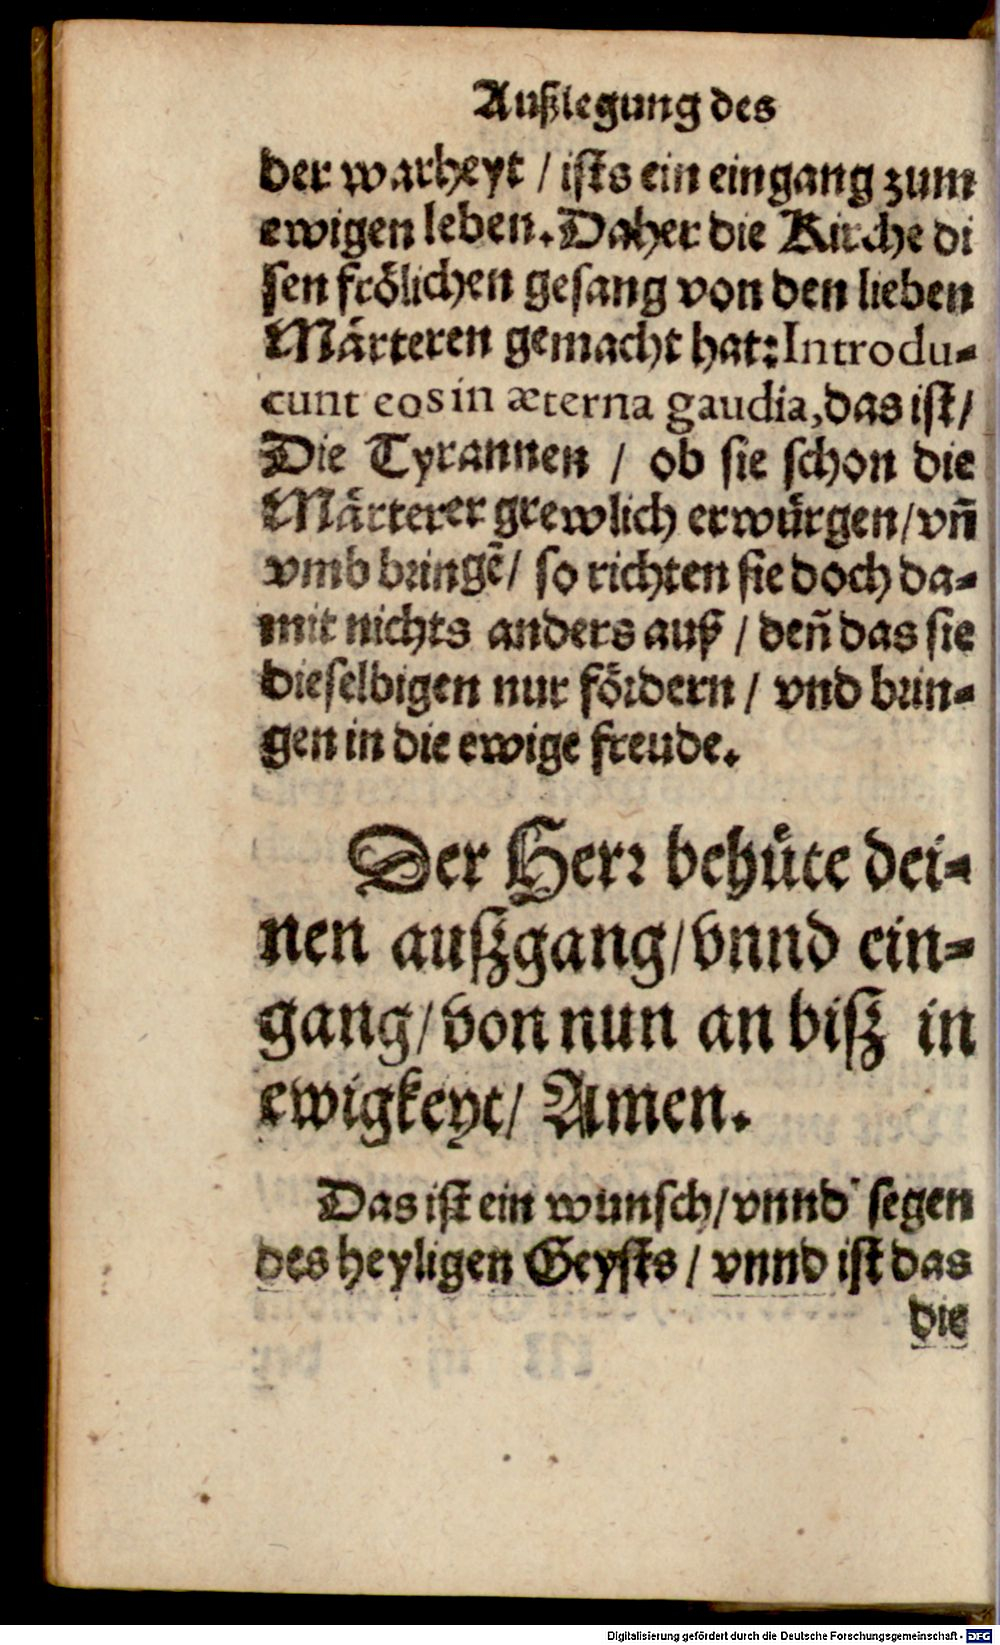 Außlegung des
der warheyt / ists ein eingang zum
ewigen leben. Daher die Kirche di
sen frölichen gesang von den lieben
Märteren gemacht hat: Introdu-
cunt eos in æterna gaudia, das ist/
Die Tyrannen / ob sie schon die
Märterer grewlich erwürgen/ vñ
vmb bringẽ/ so richten sie doch da-
mit nichts anders auß / deñ das sie
dieselbigen nur fördern / vnd brin-
gen in die ewige freude.
Der Herr behüte dei-
nen auszgang/ vnnd ein-
gang/ von nun an bisz in
ewigkeyt/ Amen.
Das ist ein wunsch/ vnnd segen
des heyligen Geysts / vnnd ist das
die
Digitalisierung gefördert durch die Deutsche Forschungsgemeinschaft - DFG